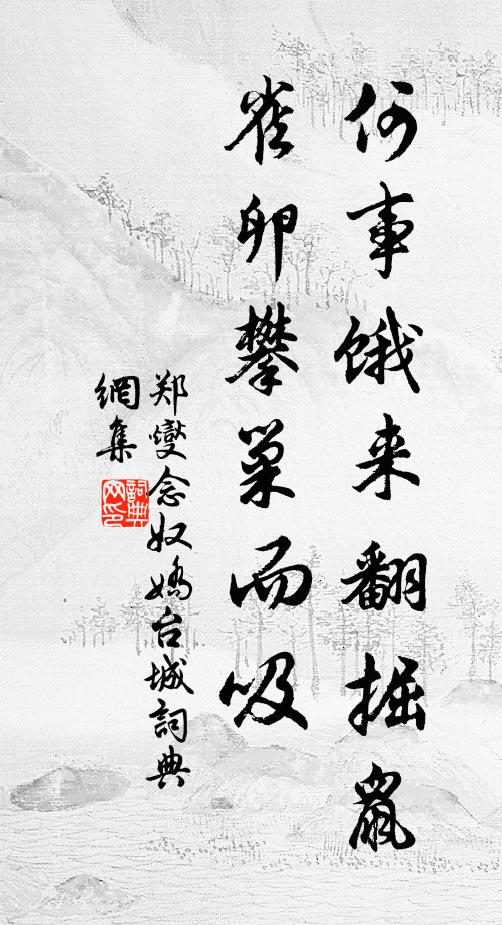 何事饿来翻掘鼠
雀卵攀巢而吸
郑燮念奴娇台城詞典
網集
詞典
网印